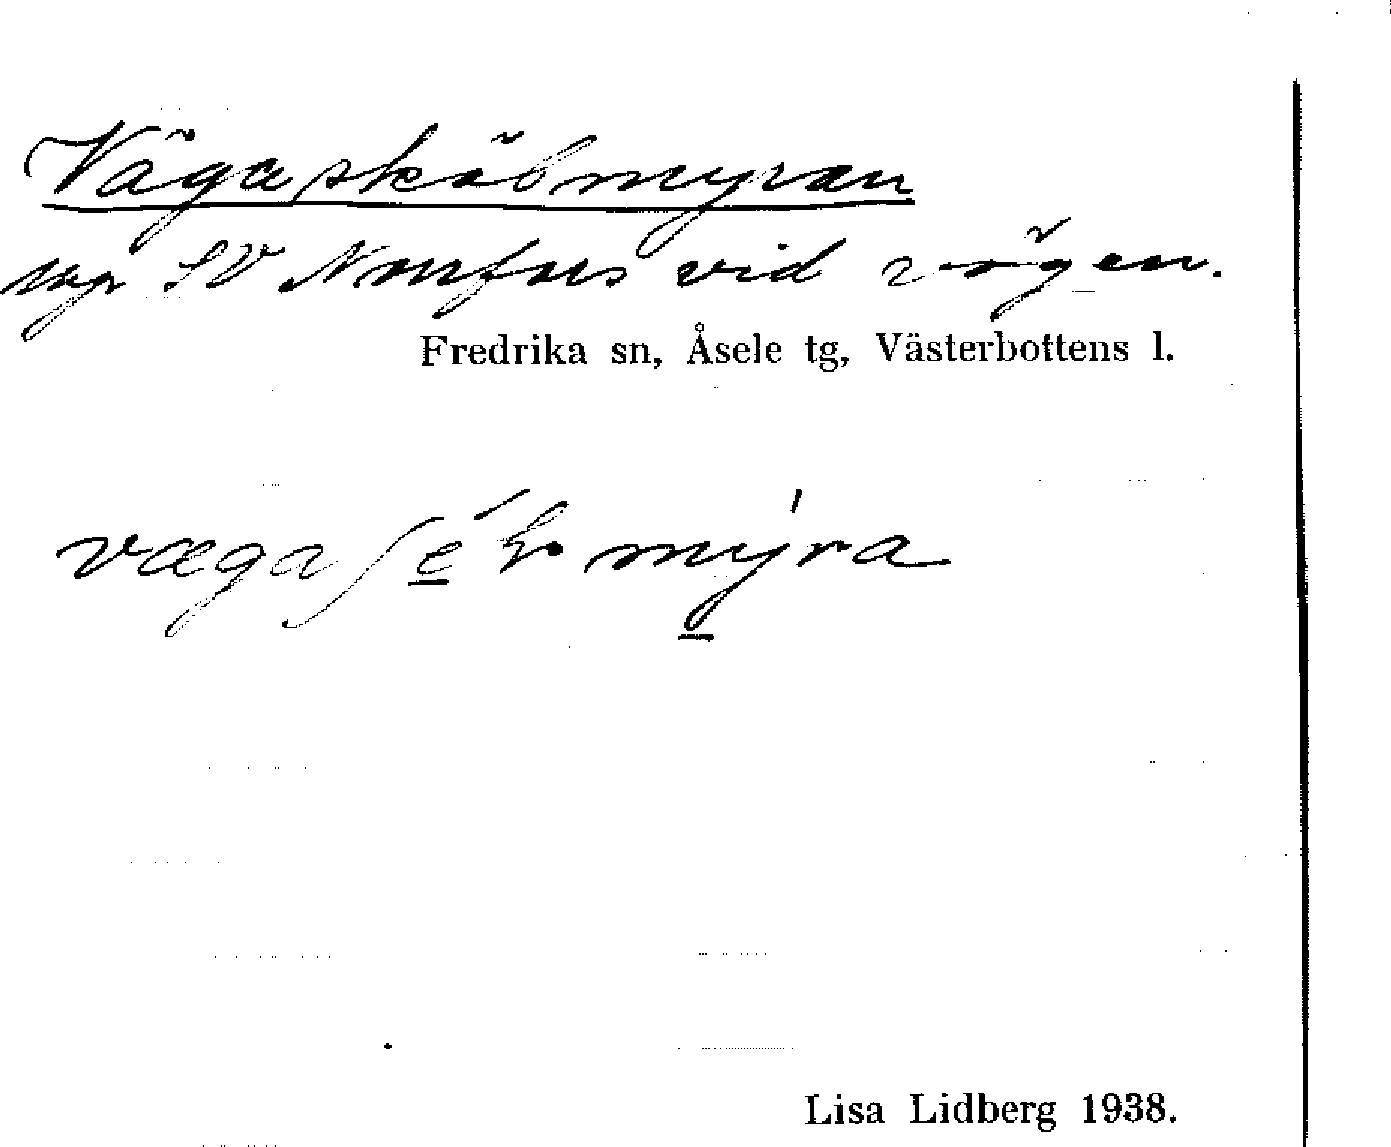 Vägaskälmyran
myr SV Norrfors vid vägen.
Fredrika sn, Åsele tg, Västerbottens l.
vægaʃé̱lmý̱ra
Lisa Lidberg 1938.